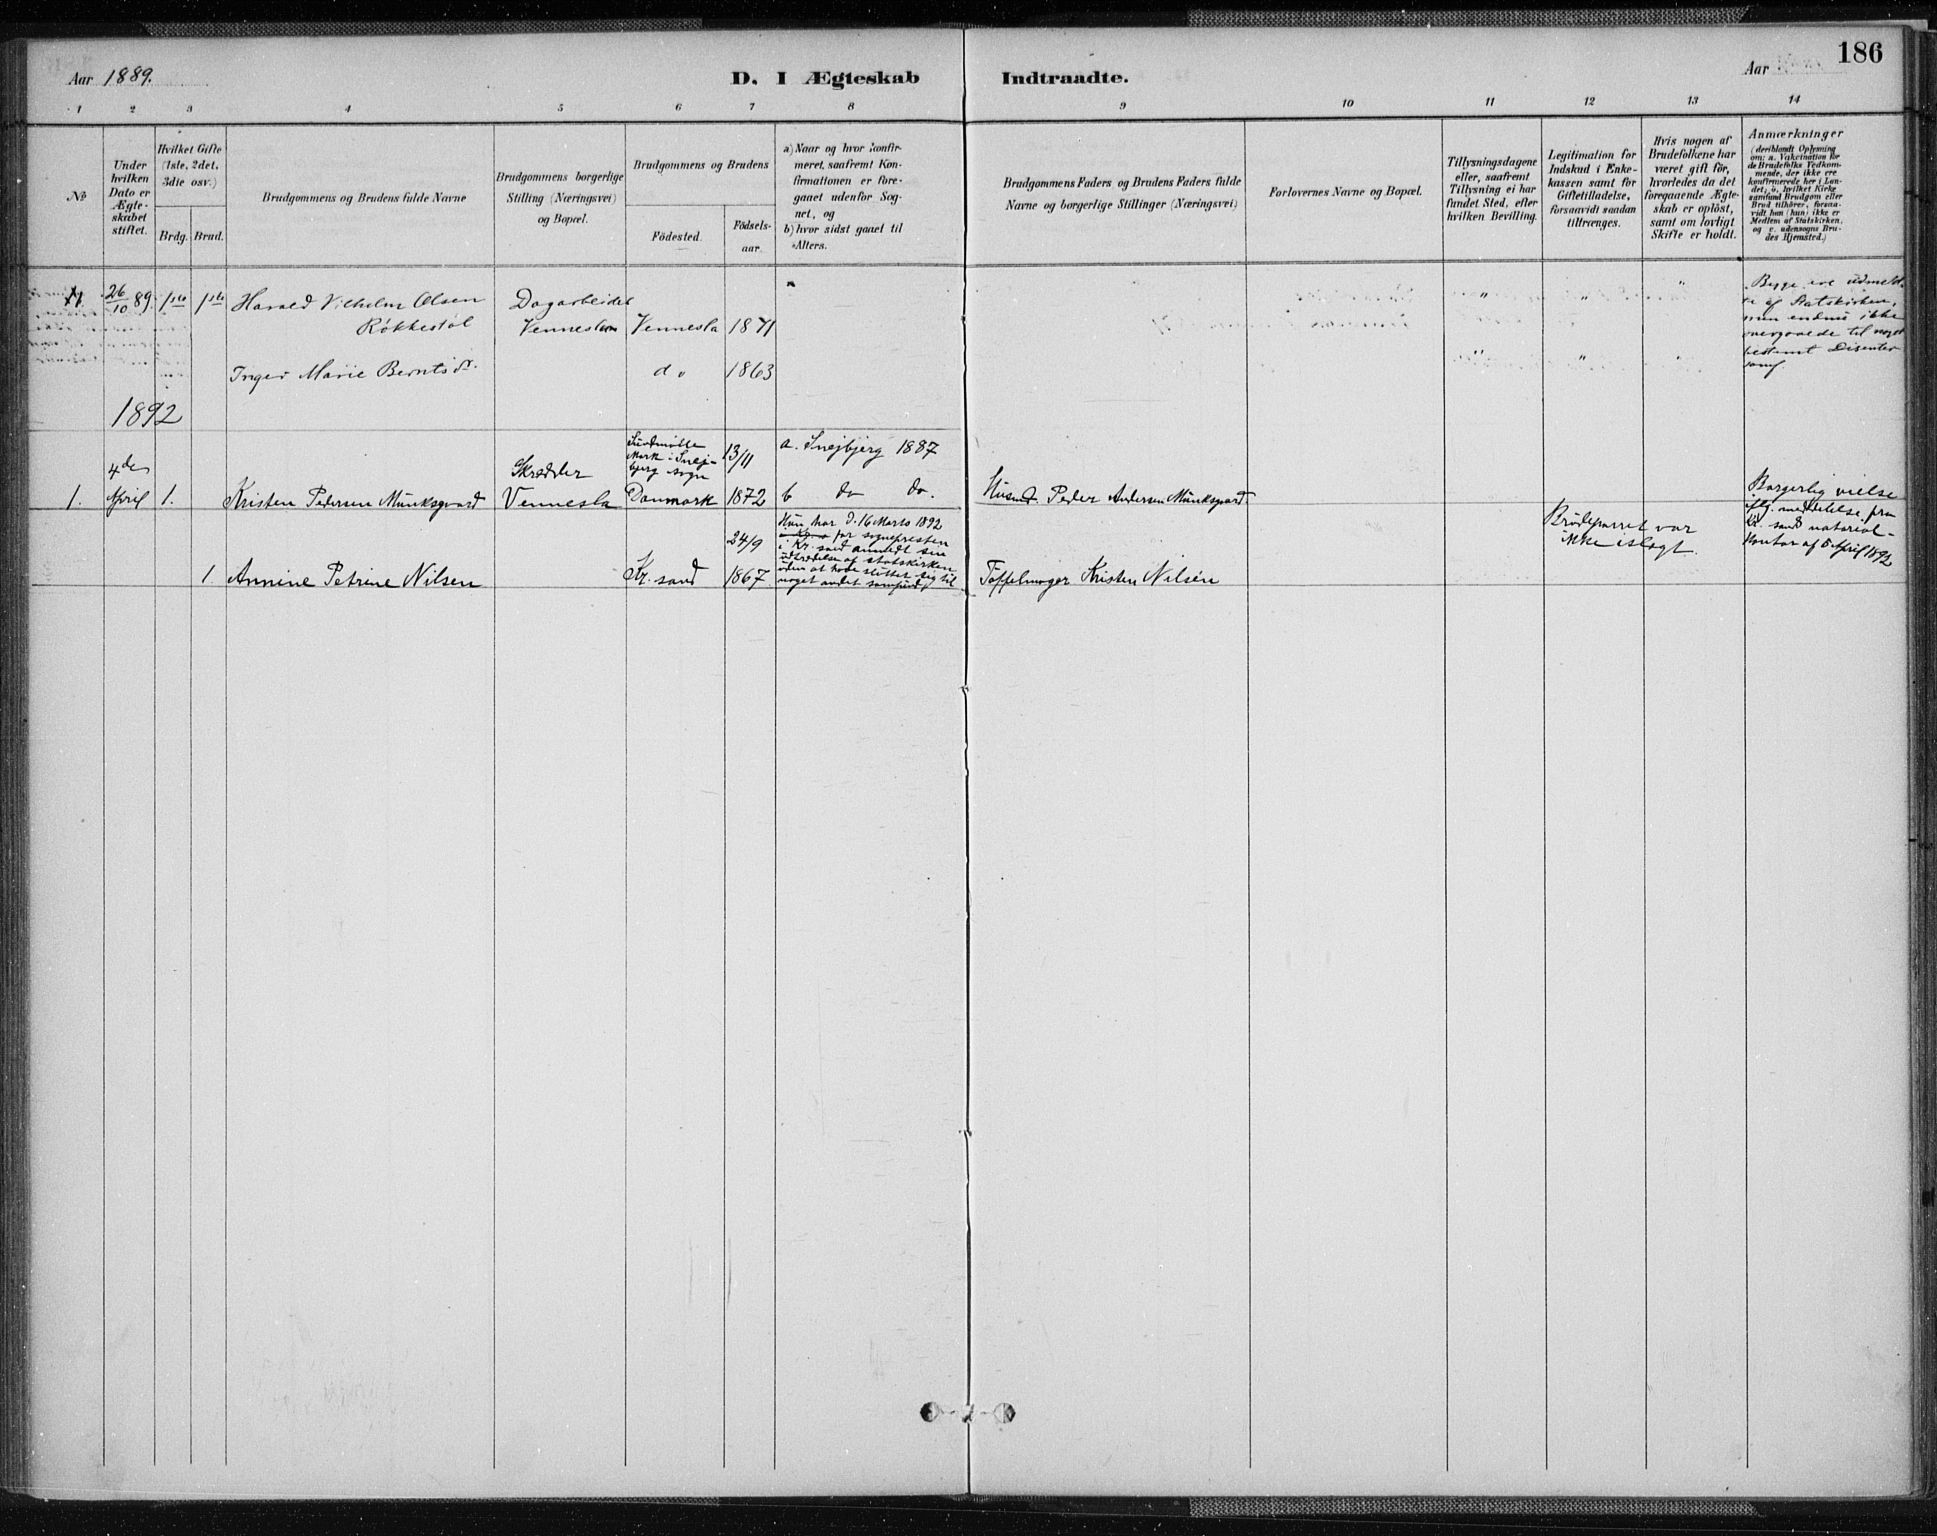 Aar 1889.
D. I Ægteskab
Indtraadte.
Aar
186
1 2 3 4 5 6 7 8 9 10 11 12 13 14
No
Under hvilken Dato er Ægteskabet stiftet.
Hvilket Gifte (1ste, 2det, 3die osv.)
Brdg. Brud.
Brudgommens og Brudens fulde Navne
Brudgommens borgerlige Stilling (Næringsvei) og Bopæl.
Brudgommens og Brudens
Födested. Födselsaar.
a) Naar og hvor konfirmeret, saafremt Konfirmationen er foregaaet udenfor Sognet, og
b) hvor sidst gaaet til Alters.
Brudgommens Faders og Brudens Faders fulde Navne og borgerlige Stillinger (Næringsvei)
Forlovernes Navne og Bopæl.
Tillysningsdagene eller, saafremt Tillysning ei har fundet Sted, efter hvilken Bevilling.
Legitimation for Indskud i Enkekassen samt for Giftetilladelse, forsaavidt saadan tiltrænges.
Hvis nogen af Brudefolkene har været gift för, hvorledes da det foregaaende Ægteskab er oplöst, samt om lovligt Skifte er holdt.
Anmærkninger
(deriblandt Oplysning om: a. Vaksination for de Brudefolks Vedkommende, der ikke ere konfirmerede her i Landet; b. hvilket Kirkesamfund Brudgom eller Brud tilhörer, forsaavidt han (hun) ikke er Medlem af Statskirken, og c. udensogns Brudes Hjemsted.)
26/10 89. 1ste 1ste Harald Vilhelm Olsen Dagarbeider
Røkkestøl Vennesla Vennesla 1871
Inger Marie Berntsdr. do 1863
Begge ere udmeldte af Statskirken,
men endnu ikke
overgaaede til noget
bestemt Disenter
samf
1892
4de
April
Snej-
bjerg sogn
13/11
a. Snejbjerg 1887
Skrædder
1. 1. Kristen Pedersen Munksgaard Vennesla Danmark 1872 b do do.
Husmd. Peder Andersen Munksgaard
Borgerlig vielse
iflg. meddelelse fra
Kr. sands notarial-
kontor af 5 April 1892
Brudeparret var
ikke i slegt.
24/9
Hun har d. 16 Marts 1892
for sognepresten
i Kr. sand anmeldt sin
udtrædelse af statskirken
uden at have sluttet sig til
noget andet samfund
1. Annine Petrine Nilsen Kr. sand 1867
Toffelmager Kristen Nilsen